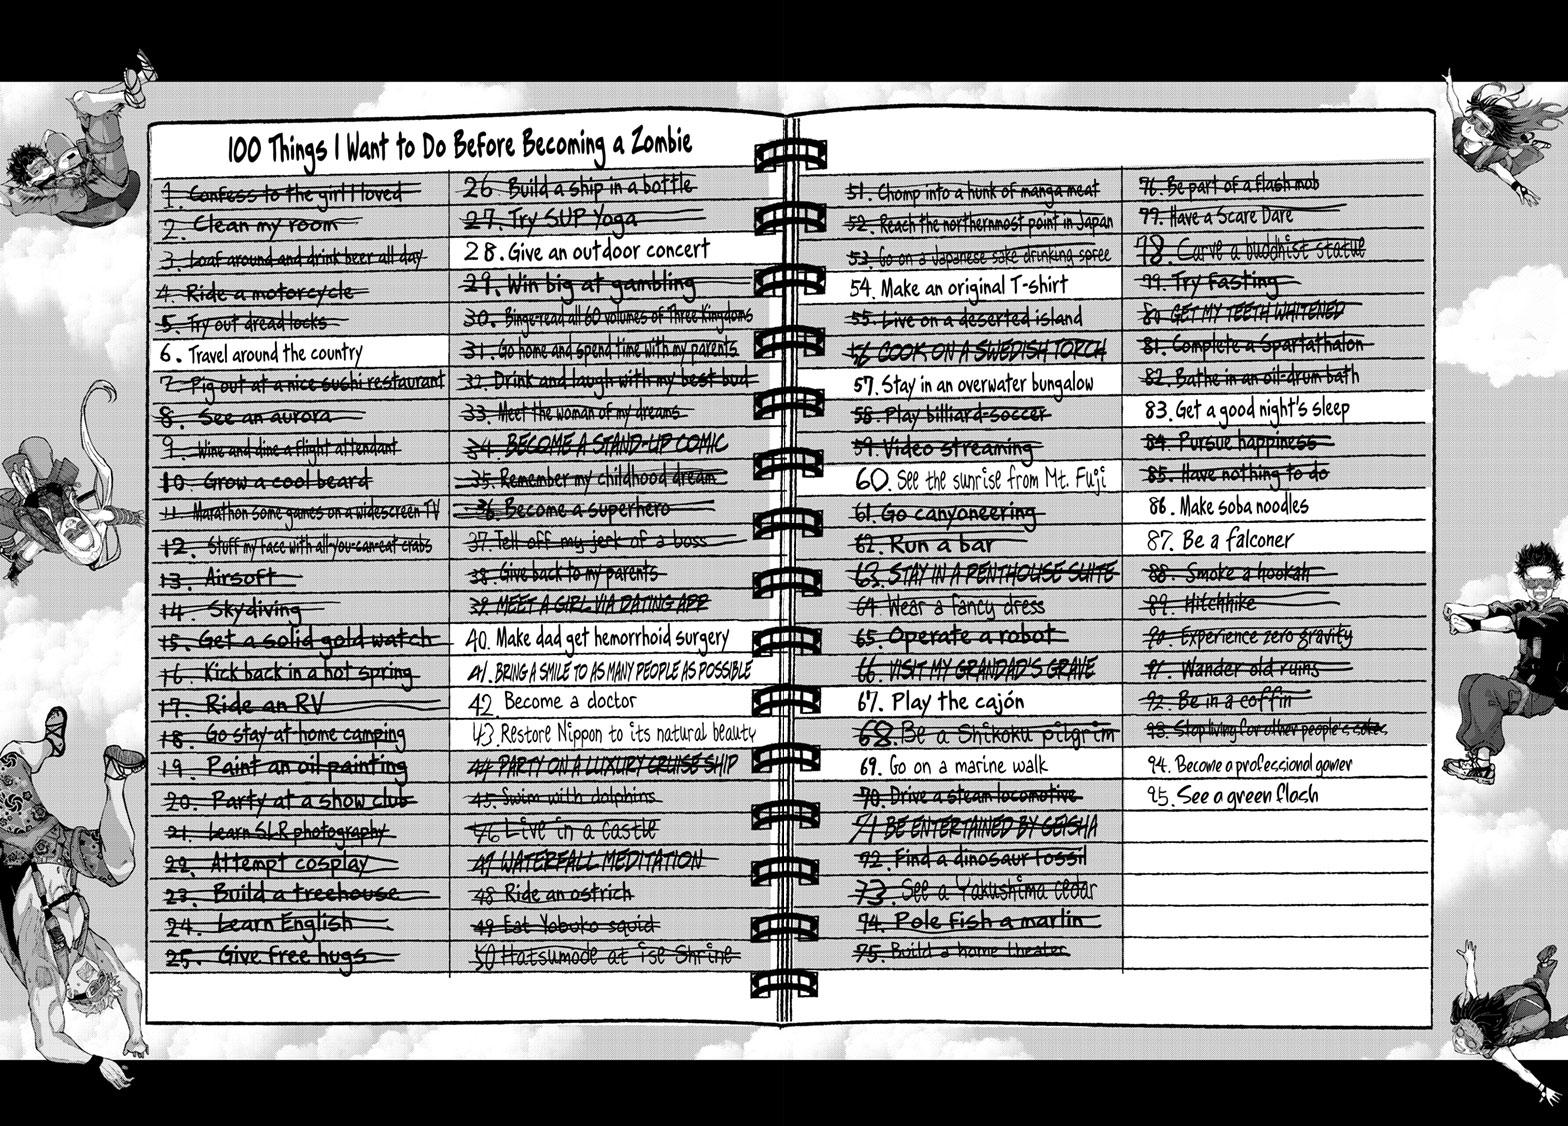 100 Things I Want to Do Before Becoming a Zombie
1. Confess to the girl I loved
2. Clean my room
3. Loaf around and drink beer all day
4. Ride a motorcycle
5. Try out dreadlocks
6. Travel around the country
7. Pig out at a nice sushi restaurant
8. See an aurora
9. Wine and dine a flight attendant
10. Grow a cool beard
11. Marathon some games on a widescreen TV
12. Stuff my face with all-you-can-eat crabs
13. Airsoft
14. Skydiving
15. Get a solid gold watch
16. Kick back in a hot spring
17. Ride an RV
18. Go stay-at-home camping
19. Paint an oil painting
20. Party at a show club
21. Learn SLR photography
22. Attempt cosplay
23. Build a treehouse
24. Learn English
25. Give free hugs
26. Build a ship in a bottle
27. Try SUP Yoga
28. Give an outdoor concert
29. Win big at gambling
30. Binge-read all 60 volumes of Three Kingdoms
31. Go home and spend time with my parents
32. Drink and laugh with my best bud
33. Meet the woman of my dreams
34. BECOME A STAND-UP COMIC
35. Remember my childhood dream
36. Become a superhero
37. Tell off my jerk of a boss
38. Give back to my parents
39. MEET A GIRL VIA DATING APP
40. Make dad get hemorrhoid surgery
41. BRING A SMILE TO AS MANY PEOPLE AS POSSIBLE
42. Become a doctor
43. Restore Nippon to its natural beauty
44 PARTY ON A LUXURY CRUISE SHIP
45. Swim with dolphins
46 Live in a castle
47 WATERFALL MEDITATION
48 Ride an ostrich
49 Eat Yobuko squid
50 Hatsumode at Ise Shrine
51. Chomp into a hunk of manga meat
52. Reach the northernmost point in Japan
53. Go on a Japanese sake drinking spree
54. Make an original T-shirt
55. Live on a deserted island
56 COOK ON A SWEDISH TORCH
57. Stay in an overwater bungalow
58. Play billiard-soccer
59. Video streaming
60. See the sunrise from Mt. Fuji
61. Go canyoneering
62. Run a bar
63. STAY IN A PENTHOUSE SUITE
64 Wear a fancy dress
65. Operate a robot
66. VISIT MY GRANDAD'S GRAVE
67. Play the cajón
68. Be a Shikoku pilgrim
69. Go on a marine walk
70. Drive a steam locomotive
71 BE ENTERTAINED BY GEISHA
72. Find a dinosaur fossil
73. See a Yakushima cedar
74. Pole fish a marlin
75. Build a home theater
76. Be part of a flash mob
77. Have a Scare Dare
78. Carve a buddhist statue
79. Try Fasting
80 GET MY TEETH WHITENED
81. Complete a Spartathalon
82. Bathe in an oil-drum bath
83. Get a good night's sleep
84. Pursue happiness
85. Have nothing to do
86. Make soba noodles
87. Be a falconer
88. Smoke a hookah
89. Hitchhike
90. Experience zero gravity
91. Wander old ruins
92. Be in a coffin
93. Stop living for other people's sakes
94. Become a professional gamer
95. See a green flash